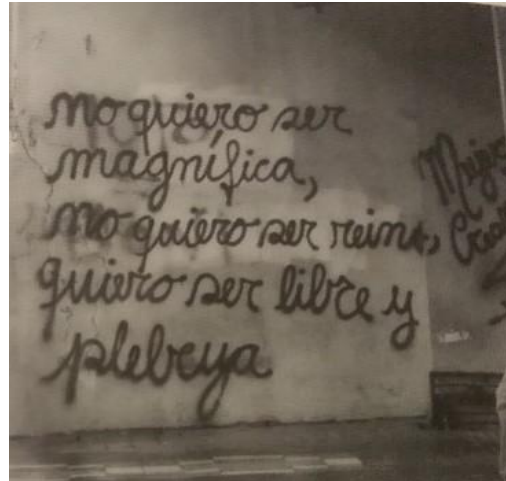 no quiero ser
magnífica,
no quiero ser reina,
quiero ser libre y
plebeya
Mujer